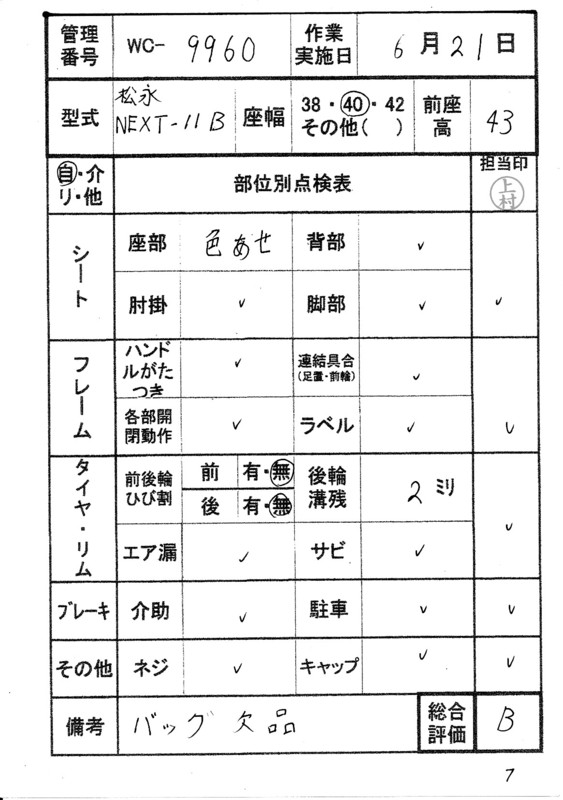 管理番号 WC- 9960 作業実施日 6月21日
型式 松永 NEXT-11B 座幅 38・40・42 その他( ) 前座高 43
自・介 リ・他 部位別点検表 担当印 上村
シート 座部 色あせ 背部 ✓
肘掛 ✓ 脚部 ✓ ✓
フレーム ハンドルがたつき ✓ 連結具合(足置・前輪) ✓
各部開閉動作 ✓ ラベル ✓ ✓
タイヤ・リム 前後輪ひび割 前 有・無 後輪溝残 2ミリ
後 有・無
エア漏 ✓ サビ ✓ ✓
ブレーキ 介助 ✓ 駐車 ✓ ✓
その他 ネジ ✓ キャップ ✓ ✓
備考 バッグ欠品 総合評価 B
7